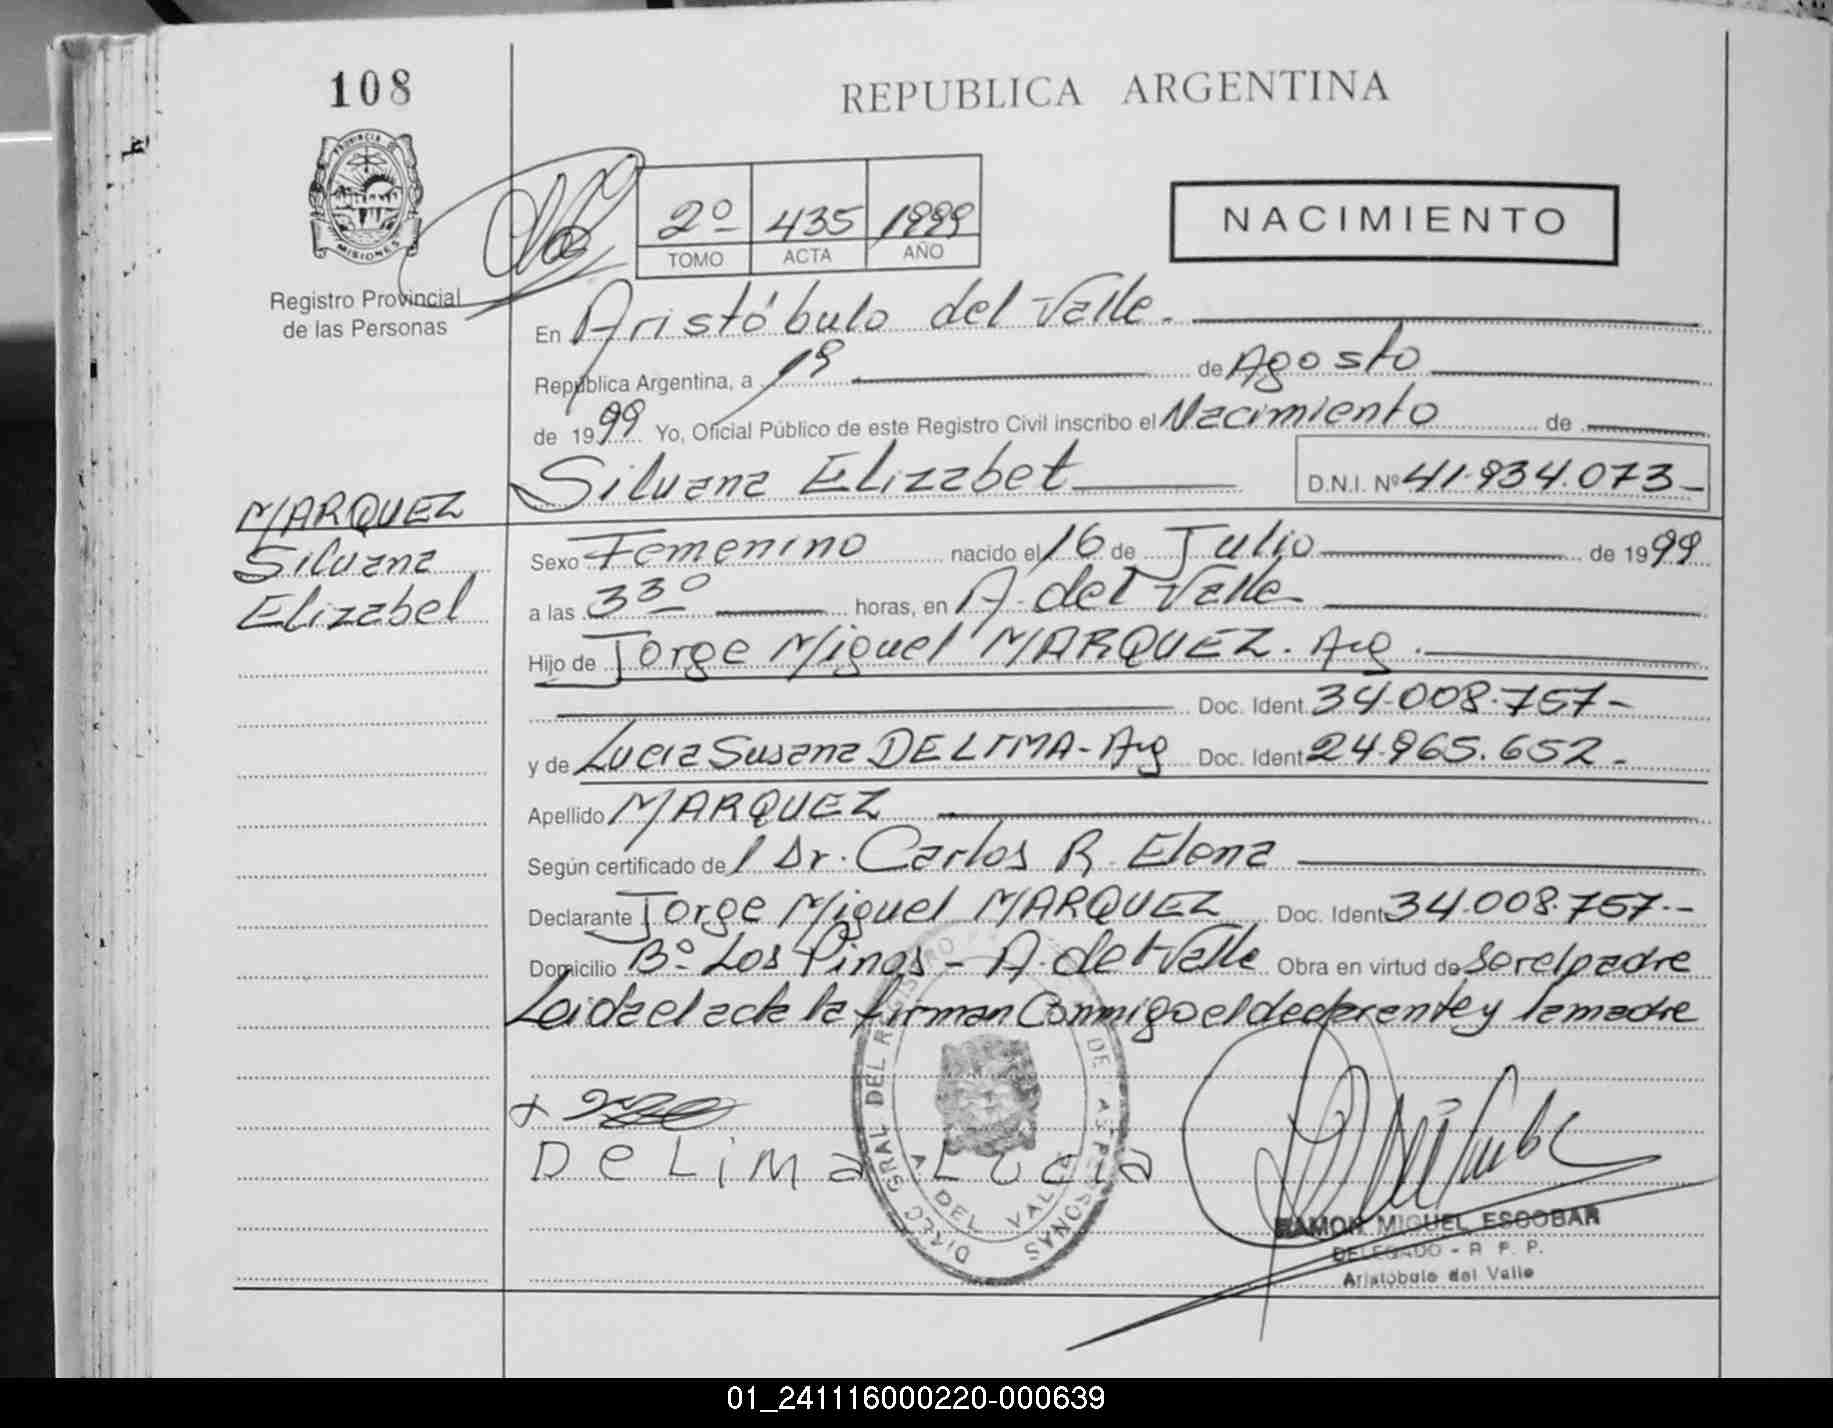 108
REPUBLICA ARGENTINA
PROVINCIA DE
MISIONES
Registro Provincial
de las Personas
2º 435 1999
TOMO ACTA AÑO
NACIMIENTO
En Aristóbulo del Valle.
República Argentina, a 19 de Agosto
de 1999 Yo, Oficial Público de este Registro Civil inscribo el Nacimiento de
Silvana Elizabet D.N.I. Nº 41.934.073
MARQUEZ
Silvana
Elizabet
Sexo Femenino nacido el 16 de Julio de 1999
a las 3 30 horas, en A. del Valle
Hijo de Jorge Miguel MARQUEZ. Arg.
Doc. Ident. 34.008.757-
y de Lucia Susana DE LIMA - Arg Doc. Ident. 24.965.652.
Apellido MARQUEZ
Según certificado del Dr. Carlos R. Elena
Declarante Jorge Miguel MARQUEZ Doc. Ident. 34.008.757.-
Domicilio Bº Los Pinos - A. del Valle Obra en virtud de Ser el padre
Leida el acta la firman Conmigo el declarante y la madre
De Lima Lucia
DIREC GRAL DEL REGISTRO DE LAS PERSONAS
A. DEL VALLE
RAMON MIGUEL ESCOBAR
DELEGADO - R. P. P.
Aristóbulo del Valle
01_241116000220-000639